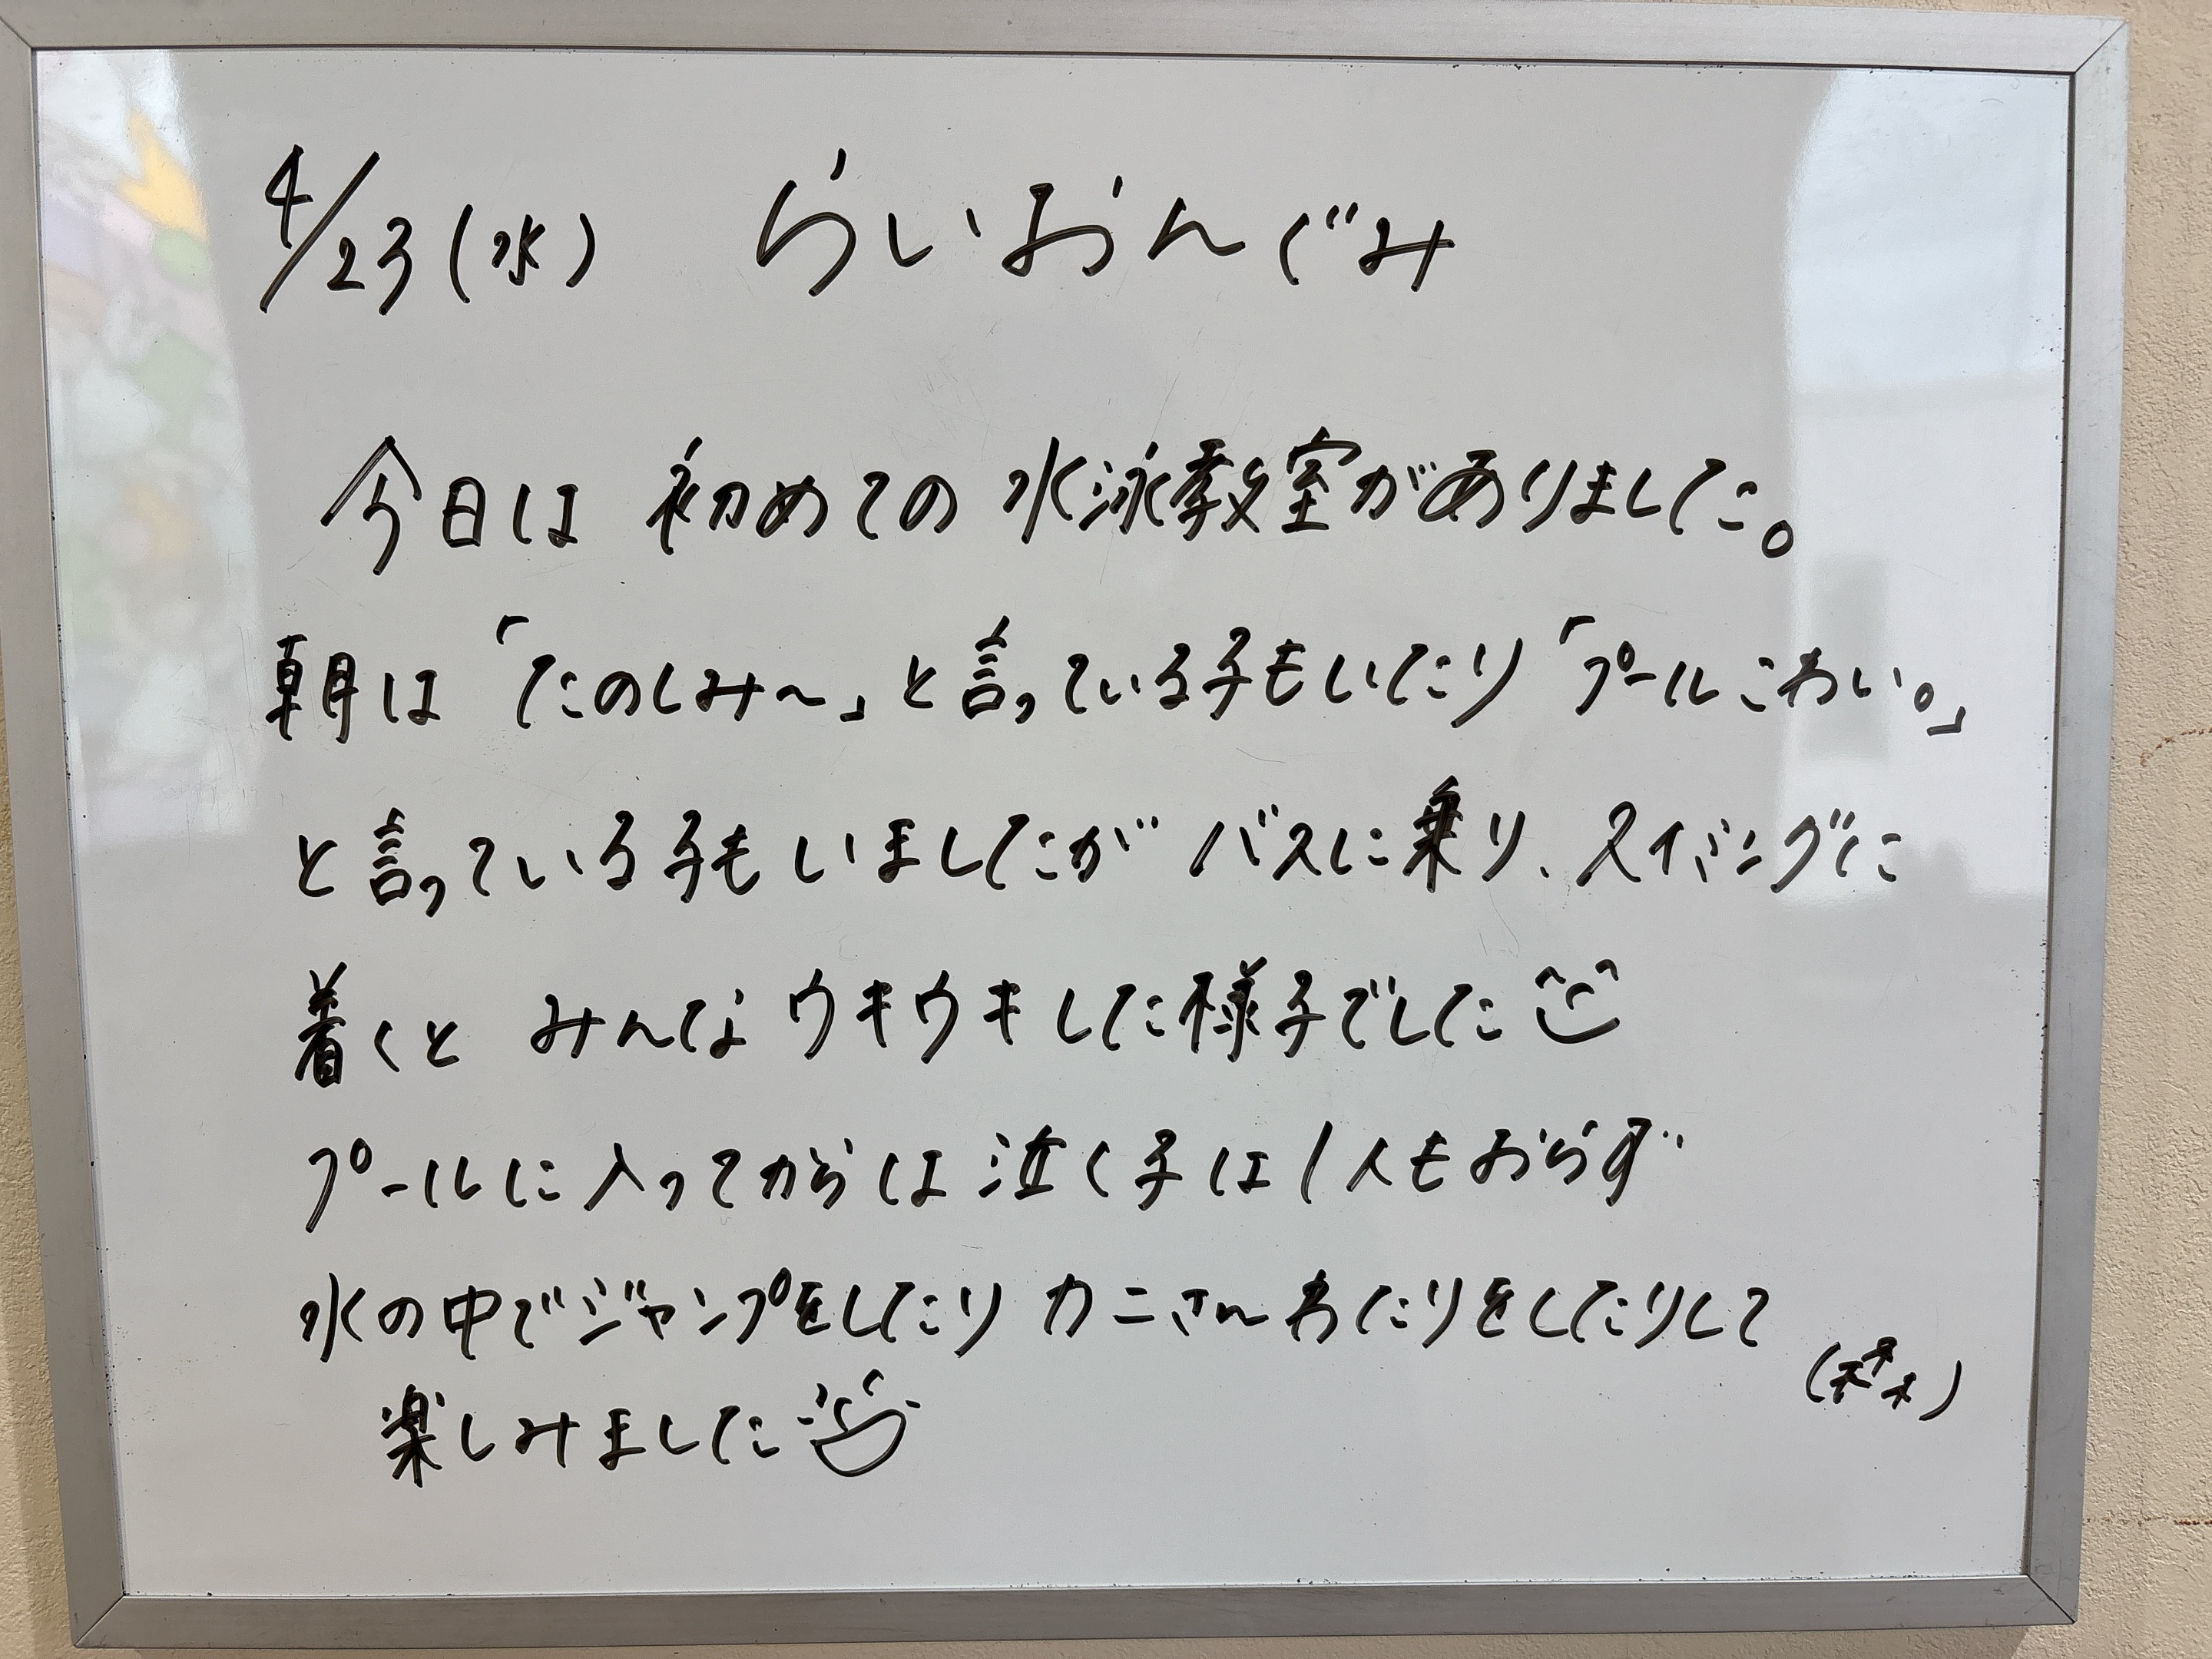 4/23(水) らいおんぐみ
今日は 初めての 水泳教室がありました。
朝は「たのしみ～」と言っている子もいたり「プールこわい。」
と言っている子もいましたが バスに乗り、スイミングに
着くと みんな ウキウキした様子でした
プールに入ってからは 泣く子は1人もおらず
水の中でジャンプをしたり カニさんわたりをしたりして
楽しみました
(森)